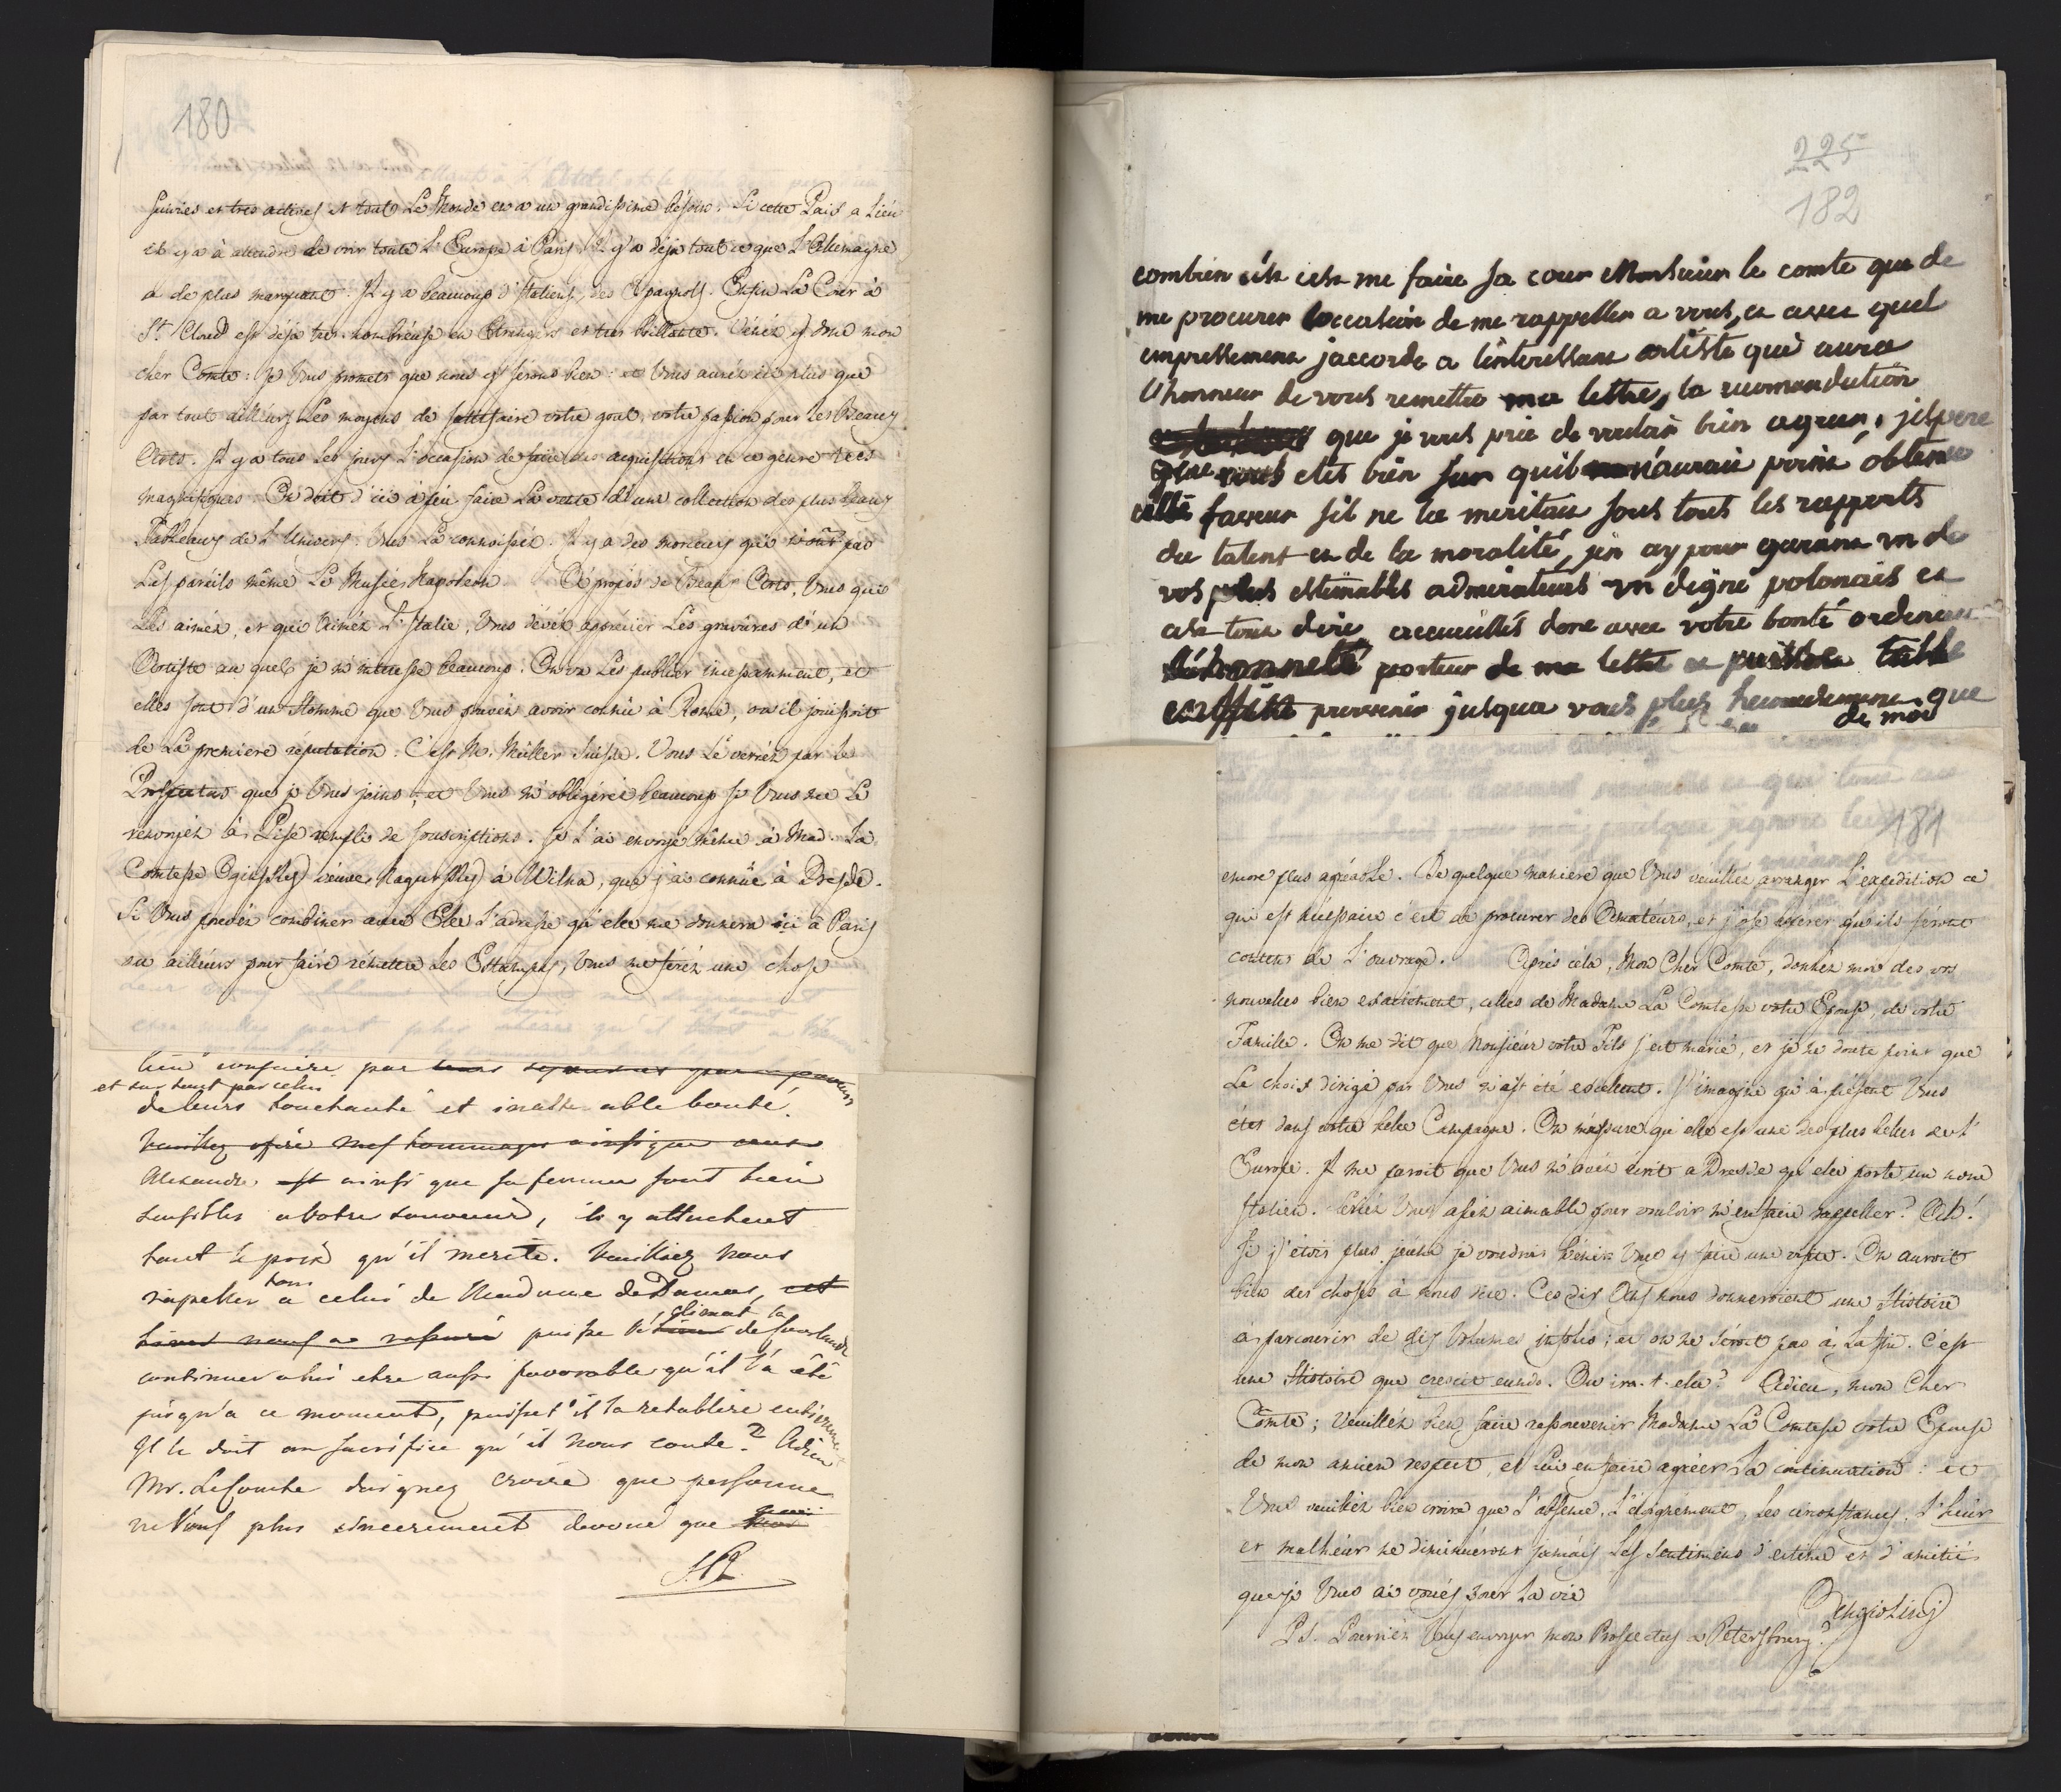 180
suivies et tres actives et tout Le Monde en a un grandissime besoin. Si cette Paix a Lieu
il y a à attendre de voir toute L'Europe à Paris. Il y'a déja tout ce que L'Allemagne
a de plus marquant. Il y a beaucoup d'Italiens, des Espagnols. Enfin La Cour à
St. Cloud est déja tres nombreuse en Etrangers et tres brillante. Venéz y donc mon
cher Comte: Je Vous promets que nous y serons bien: et Vous auréz ici plus que
par tout ailleurs Les moyens de satisfaire votre gout, votre passion pour Les Beaux
Arts. Il y a tous Les jours L'occasion de faire des acquisitions en ce genre tres
magnifiques. On doit d'ici à peu faire La vente d'une collection des plus beaux
Tableaux de L'Univers. Vous La connoissés. Il y a des morceaux qui n'ont pas
Les pareils même Le Musée Napoleon. Apropos de Beaux Arts, Vous qui
Les aiméz, et qui aiméz L'Italie, Vous devéz apprécier Les gravures d'un
Artiste au quel je m'interesse beaucoup. On va Les publier incessamment, et
elles sont d'un Homme que Vous pouvéz avoir connu à Rome, ou il jouissoit
de La premiere reputation. C'est Mr. Müller Suisse. Vous Le verréz par le
Prospectus que je Vous joins, et Vous m'obligeréz beaucoup si Vous me Le
renvoyéz à Pise remplis de souscriptions. Je L'ai envoyé même à Mad. La
Comtesse Oginsky (veuve Nagursky) à Wilna, que j'ai connue à Dresde.
Si Vous pouvéz combiner avec Elle L'adresse qu'elle me donnera ici à Paris
ou ailleurs pour faire remettre Les Estampes, Vous me feréz une chose
et sur tout par celui
de leurs touchante et inalterable bonté.
Veuillez offrir mes hommages ainsi que ceux
Alexandre est ainsi que sa femme sont bien
sensibles a votre souvenir, ils y attachent
tout le prix qu'il merite. Veuilliez nous
tous
rapeller a celui de Madame de Damas, et
climat la
puisse le de Courlande
continuer a lui etre aussi favorable qu'il l'a été
jusqu'a ce moment, puisset il la retablire entierement
Il le doit au sacrifice qu'il nous coute. Adieu
Mr. Le Comte daignez croire que personne
ne Vous plus sincerement devoué que
225
182
combien c'est me faire sa cour Monsieur le comte que de
me procurer loccasion de me rappeller a vous, et avec quel
empressement jaccorde a l'interessant artiste qui aura
l'honneur de vous remettre ma lettre, la recomandation
que je vous prie de vouloir bien agreer, jespere
que vous etes bien sur quil n'aurait point obtenue
cette faveur sil ne la meritait sous tous les rapports
du talent et de la moralité, jen ay pour garant un de
vos plus estimables admirateurs un digne polonais et
cest tout dire, accueilles donc avec votre bonté ordinaire
l'honnette porteur de ma lettre et puisse
parvenir jusqua vous plus heureusement que
de moi
181
encore plus agréable. De quelque maniere que Vous veuillez arranger L'expedition ce
qui est nécessaire c'est de procurer des Amateurs, et j'ose assurer qu'ils seront
contens de L'ouvrage. Aprés cela, Mon Cher Comte, donnéz moi des vos
nouvelles bien exactement, celles de Madame La Comtesse votre Epouse, de votre
Famille. On me dit que Monsieur votre Fils s'est marié, et je ne doute point que
Le choix dirigé par Vous n'ait été excellent. J'imagine qu'à présent Vous
étes dans votre belle Campagne. On m'assure qu'elle est une des plus belles de l'
Europe. Il me paroit que Vous m'avéz écrit a Dresde qu'elle porte un nom
Italien. Seriéz Vous assez aimable pour vouloir m'en faire rappeller? Ah!
Si j'étois plus jeune je voudrois bien Vous y faire une visite. On auroit
bien des choses à nous dire. Ces dix Ans nous donneroient une Histoire
à parcourir de dix Volumes infolio; et on ne seroit pas à La fin. C'est
une Histoire que crescit eundo. Ou ira-t-elle? Adieu, mon Cher
Comte; Veuilléz bien faire ressouvenir Madame La Comtesse votre Epouse
de mon ancien respect, et Lui en faire agréer La continuation: et
Vous veuilléz bien croire que L'absence, L'éloignement, Les circonstances, L'heur
et malheur ne diminueront jamais Les sentimens d'estime et d'amitié
que je Vous ai voués pour La vie
PS. Pourriéz Vous envoyer mon Prospectus a Petersbourg?